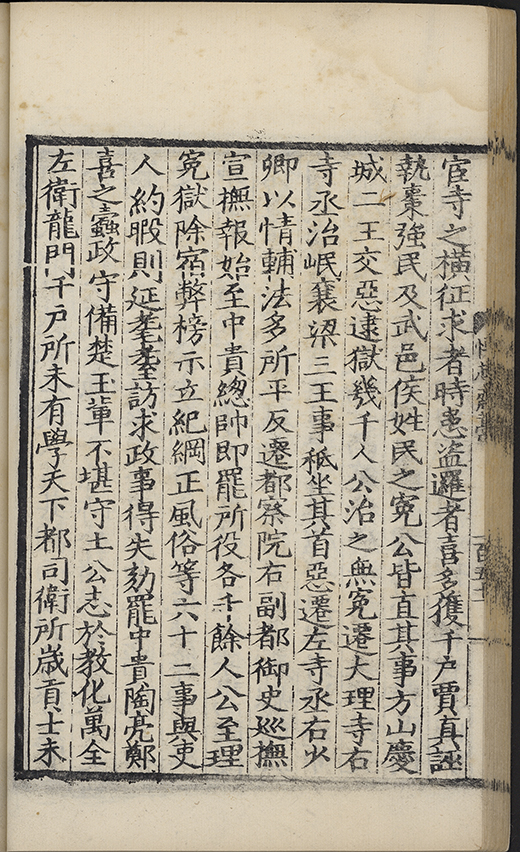 宦寺之橫征求者時患盗邏者喜多獲千戶賈真誣
執棗強民及武邑侯姓民之寃公皆直其事方山慶
城二王交惡逮獄幾千人公治之無寃遷大理寺右
寺丞治岷襄梁三王事秪坐其首惡遷左寺丞右少
卿以情輔法多所平反遷都察院右副都御史巡撫
宣撫報始至中貴緫帥即罷所役各千餘人公至理
寃獄除宿弊榜示立紀綱正風俗等六十二事與吏
人約暇則延耄耋訪求政事得失劾罷中貴陶亮鄭
喜之蠧政守備楚玉軰不堪守土公志於教化萬全
左衛龍門千戶所未有學天下都司衛所歳貢士未